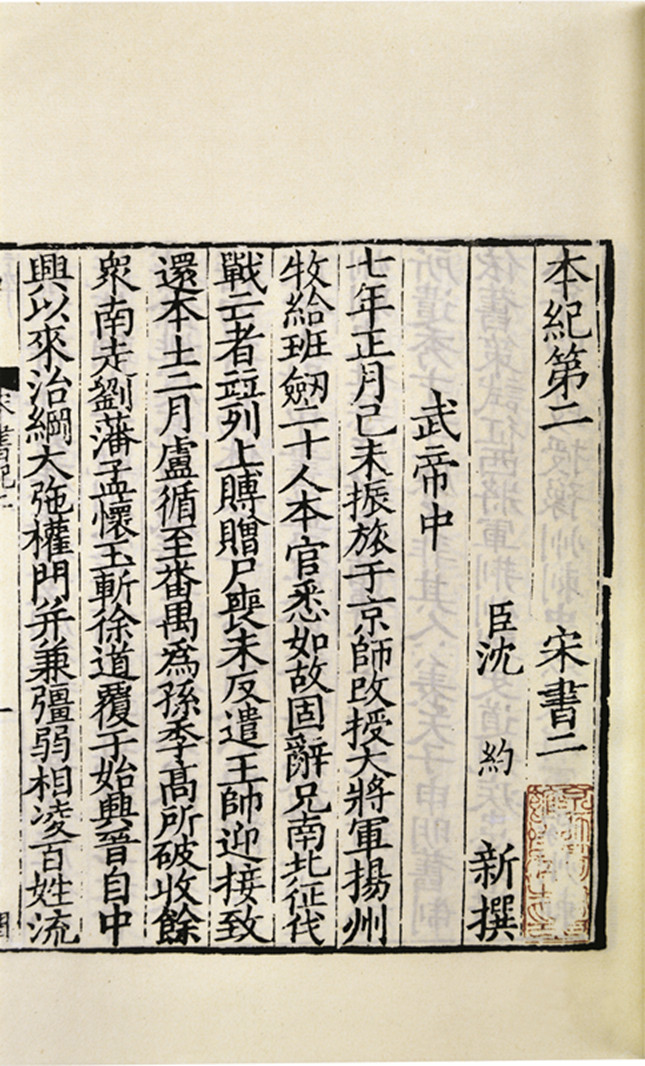 本紀第二 宋書二
臣沈 約 新撰
武帝中
七年正月己未振旅于京師改授大將軍揚州
牧給班劒二十人本官悉如故固辭凡南北征伐
戰亡者並列上賻贈尸喪未反遣主帥迎接致
還本土二月盧循至番禺爲孫季高所破收餘
衆南走劉藩孟懷玉斬徐道覆于始興晉自中
興以來治綱大弛權門并兼彊弱相凌百姓流
宋書紀二
一